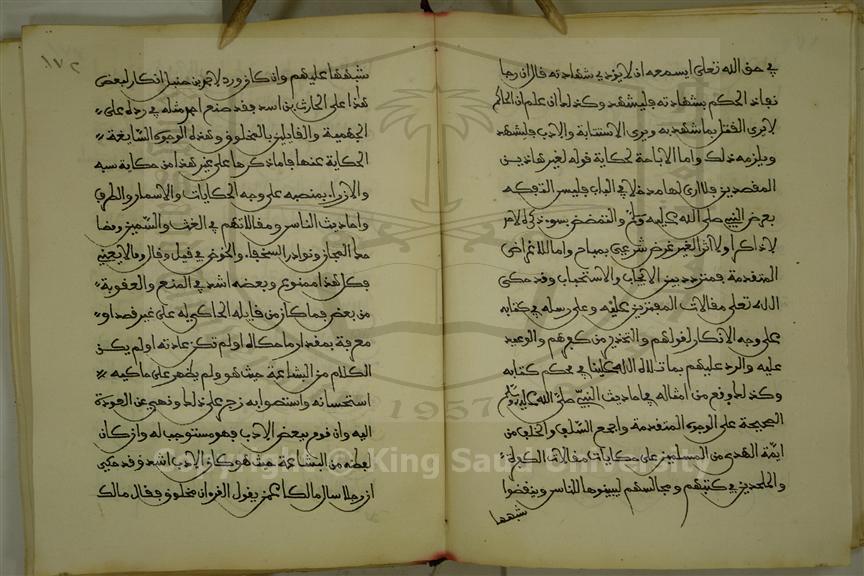 في حق الله تعلى ايسمعه ان لا يؤدي شهادته قال ان رجا
نفاذ الحكم بشهادته فليشهد وكذلك ان علم ان الحاكم
لا يرى القتل بما شهد به ويرى الاستتابة والادب فليشهد
ويلزمه ذلك واما الاباحة لحكاية قوله لغير هاذين
المقصدين فلا ارى لها مدخلا في الباب فليس التفكه
بعرض النبي صلى الله عليه وسلم والتمضمض بسوء ذكره لاحد
لا ذاكرا ولا اثرا لغير غرض شرعي بمباح واما للاغراض
المتقدمة فمتردد بين الايجاب والاستحباب وقد حكى
الله تعلى مقالات المفترين عليه وعلى رسله في كتابه
على وجه الانكار لقولهم والتحذير من كفرهم والوعيد
عليه والرد عليهم بما تلاه الله علينا في محكم كتابه
وكذلك وقع من امثاله في احاديث النبي صلى الله عليه وسلم
الصحيحة على الوجوه المتقدمة واجمع السلف والخلف من
ايمة الهدى من المسلمين على حكايات مقالات الكفرة
والملحدين في كتبهم ومجالسهم ليبينوها للناس وينقضوا
شبهها
١٧٢
شبهها عليهم وان كان ورد لاحمد بن حنبل انكار لبعض
هذا على الحارث بن اسد فقد صنع احمد مثله في رده على
الجهمية والقايلين بالمخلوق وهذه الوجوه السايغة
الحكاية عنها فاما ذكرها على غير هذا من حكاية سبه
والازراء بمنصبه على وجه الحكايات والاسمار والطرف
واحاديث الناس ومقالاتهم في الغث والسمين ومضا
حك المجان ونوادر السخفاء والخوض في قيل وقال وما لا يعني
فكل هذا ممنوع وبعضه اشد في المنع والعقوبة
من بعض فما كان من قايله الحاكي له على غير قصد او
معرفة بمقدار ما حكاه او لم تكن عادته او لم يكن
الكلام من البشاعة حيث هو ولم يظهر على حاكيه
استحسانه واستصوابه زجر على ذلك ونهي عن العودة
اليه وان قوم ببعض الادب فهو مستوجب له وان كان
لفظه من البشاعة حيث هو كان الادب اشد وقد حكي
ان رجلا سال مالكا عمن يقول القرءان مخلوق فقال مالك
Copyright © King Saud University
1957